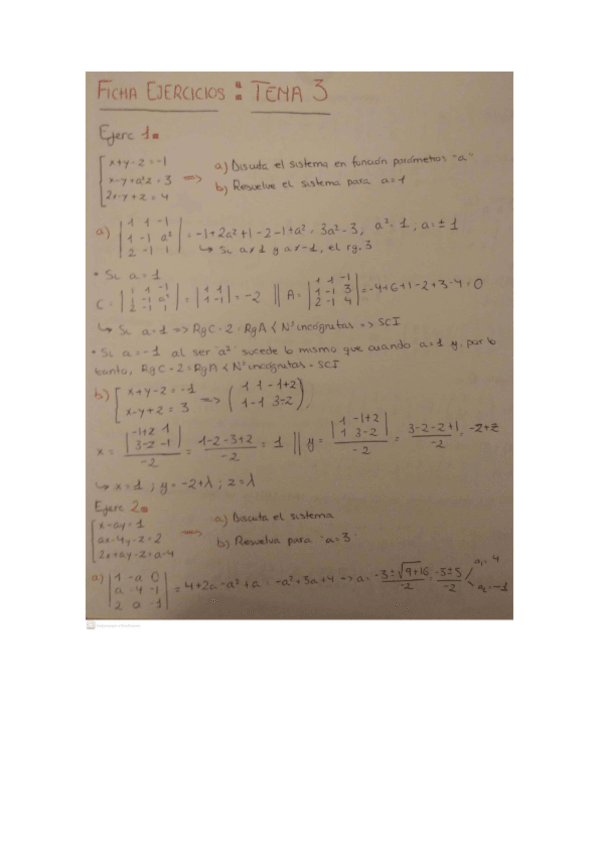 FICHA EJERCICIOS : TEMA 3
Ejerc 1.
x+y-z=-1
x-y+a²z=3
2x-y+z=4
=> a) Discuta el sistema en función parámetros "a"
b) Resuelve el sistema para a=1
a) |1 1 -1| = -1+2a²+1-2-1+a² = 3a²-3, a²=1; a=±1
|1 -1 a²|
|2 -1 1|
↳ Si a≠1 y a≠-1, el rg. 3
• Si a=1
C = |1 1 -1| = |1 1| = -2 || A = |1 1 -1| = -4+6+1-2+3-4=0
|1 -1 a²| |1 -1| |1 -1 3|
|2 -1 1| |2 -1 4|
↳ Si a=1 => RgC=2=RgA < Nº incógnitas => SCI
• Si a=-1 al ser "a²" sucede lo mismo que cuando a=1 y, por lo
tanto, RgC=2=RgA < Nº incógnitas = SCI
b) x+y-z=-1 => (1 1 -1+z)
x-y+z=3 (1 -1 3-z)
x = |-1+z 1| / -2 = 1-z-3+z / -2 = 1 || y = |1 -1+z| / -2 = 3-z-z+1 / -2 = -2+z
|3-z -1| |1 3-z|
↳ x=1; y=-2+λ; z=λ
Ejerc 2.
x-ay=1
ax-4y-z=2
2x+ay-z=a-4
=> a) Discuta el sistema
b) Resuelva para "a=3"
a) |1 -a 0| = 4+2a-a²+a = -a²+3a+4 -> a = -3±√9+16 / -2 = -3±5 / -2
|a -4 -1|
|2 a -1|
a₁=4
a₂=-1